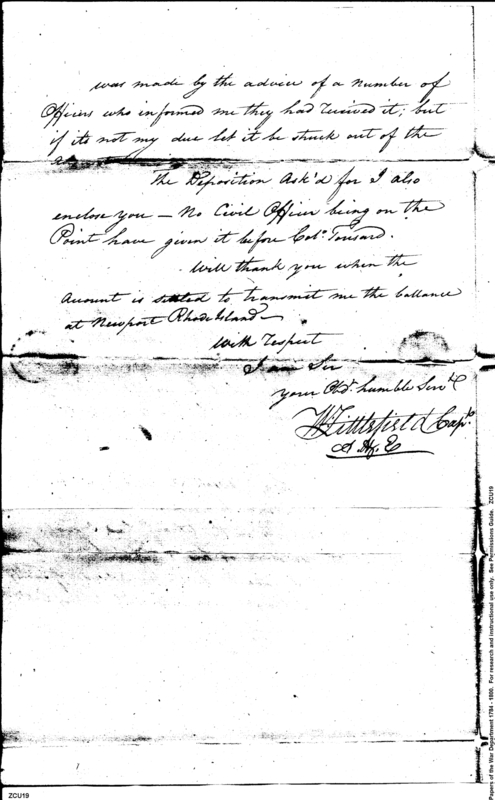 was made by the advice of a number of
Officers who informed me they had received it; but
if its not my due let it be struck out of the
The Deposition Ask'd for I also
enclose you — No Civil Officer being on the
Point have given it before Col.o Tousard.
Will thank you when the
Amount is settled to transmit me the ballance
at Newport Rhode Island —
With respect
I am Sir
your Obd.t humble Serv.t
W Littlefield Cap.t
ZCU19
Papers of the War Department 1784 - 1800. For research and instructional use only. See Permissions Guide. ZCU19